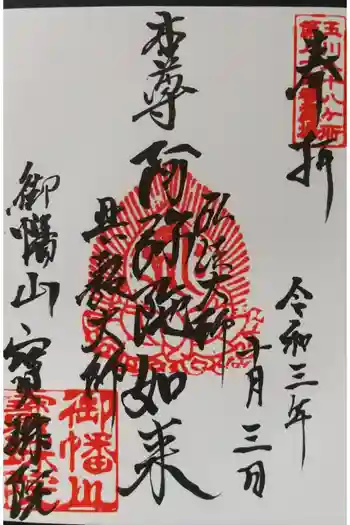 奉拝
令和三年
十月三日
弘法大師
本尊 阿弥陀如来
興教大師
御幡山 宝珠院
玉川八十八ヶ所
御幡山